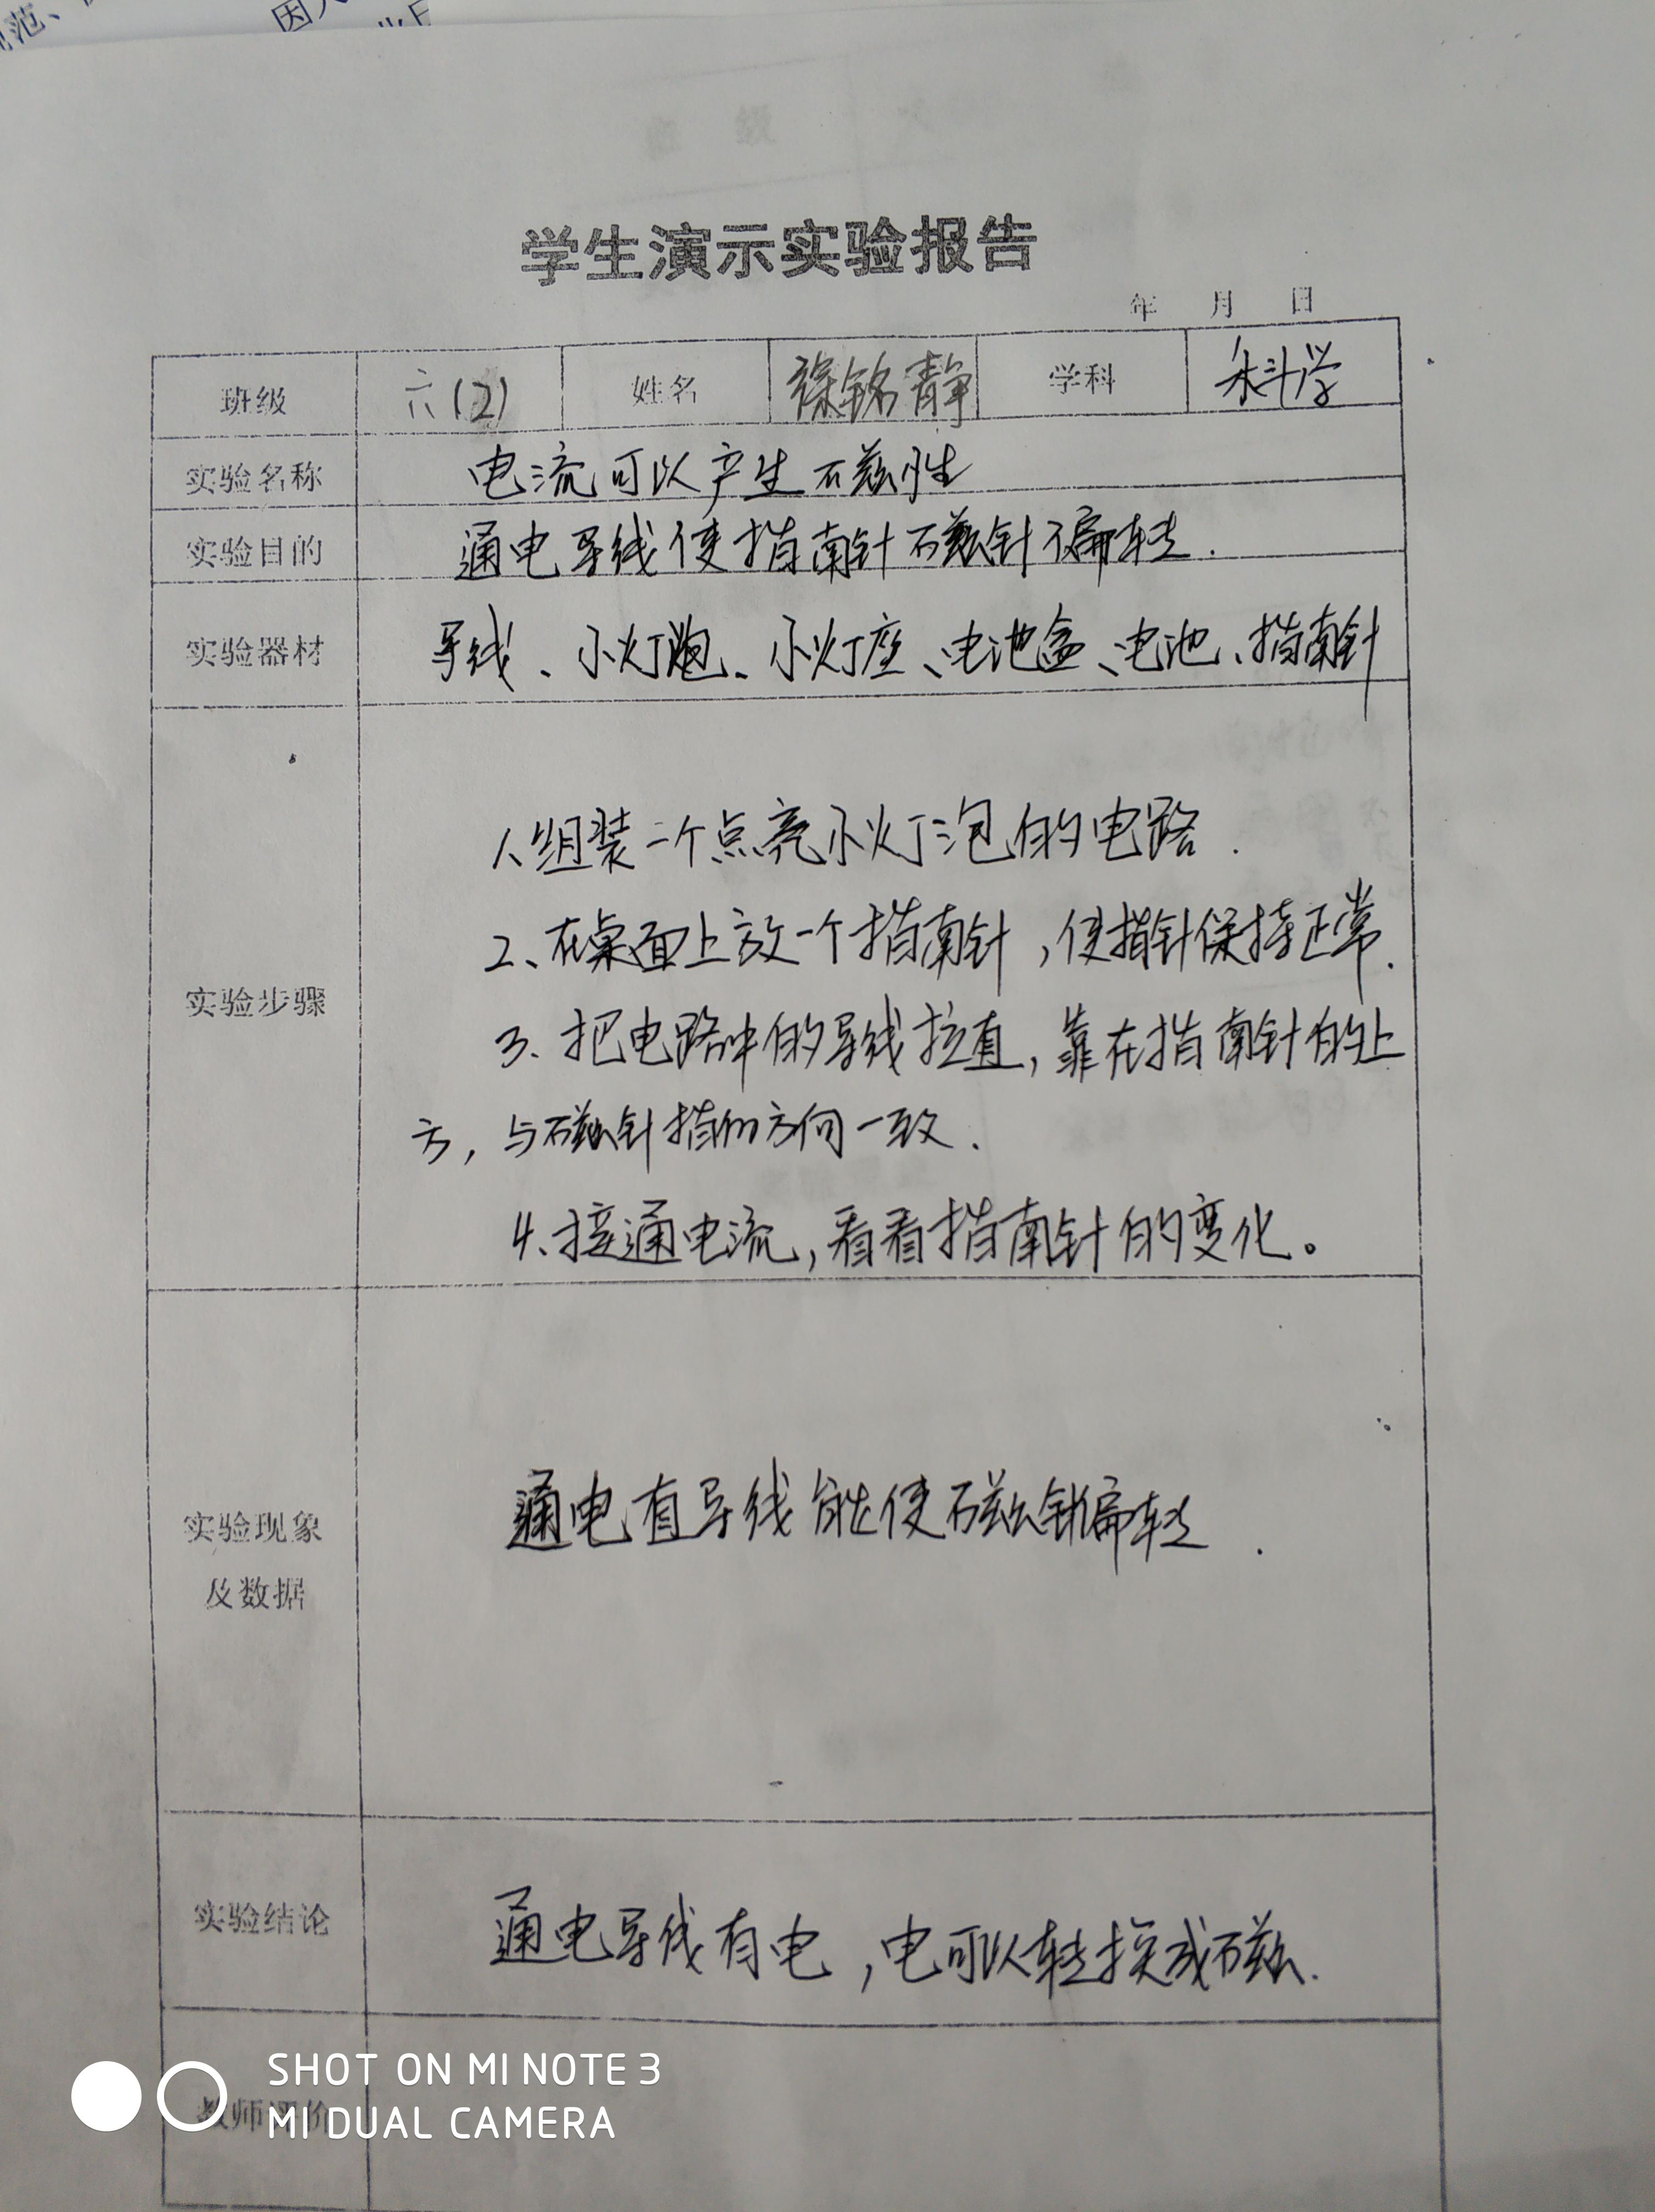 范、
因
学生演示实验报告
年 月 日
班级 六(2) 姓名 徐铭静 学科 科学
实验名称 电流可以产生磁性
实验目的 通电导线使指南针磁针偏转.
实验器材 导线、小灯炮、小灯座、电池盒、电池、指南针
1、组装一个点亮小灯泡的电路.
2、在桌面上放一个指南针,使指针保持正常.
实验步骤
3、把电路中的导线拉直,靠在指南针的上
方,与磁针指的方向一致.
4、接通电流,看看指南针的变化。
通电直导线能使磁针偏转.
实验现象
及数据
实验结论 通电导线有电,电可以转换成磁.
教师评价
SHOT ON MI NOTE 3
MI DUAL CAMERA